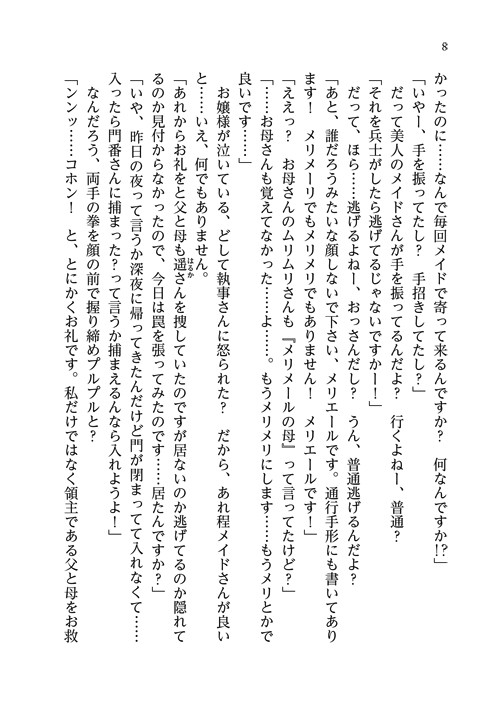 8
かったのに……なんで毎回メイドで寄って来るんですか？　何なんですか!?」
「いやー、手を振ってたし？　手招きしてたし？」
だって美人のメイドさんが手を振ってるんだよ？　行くよねー、普通？
「それを兵士がしたら逃げてるじゃないですかー！」
だって、ほら……逃げるよねー、おっさんだし？　うん、普通逃げるんだよ？
「あと、誰だろうみたいな顔しないで下さい、メリエールです。通行手形にも書いてあり
ます！　メリメーリでもメリメリでもありません！　メリエールです！」
「ええっ？　お母さんのムリムリさんも『メリメールの母』って言ってたけど？」
「……お母さんも覚えてなかった……よ……。もうメリメリにします……もうメリとかで
良いです……」
お嬢様が泣いている、どして執事さんに怒られた？　だから、あれ程メイドさんが良い
と……いえ、何でもありません。
「あれからお礼をと父と母も遥さんを捜していたのですが居ないのか逃げてるのか隠れて
はるか
るのか見付からなかったので、今日は罠を張ってみたのです……居たんですか？」
「いや、昨日の夜って言うか深夜に帰ってきたんだけど門が閉まってて入れなくて……
入ったら門番さんに捕まった？って言うか捕まえるんなら入れようよ！」
なんだろう、両手の拳を顔の前で握り締めプルプルと？
「ンンッ……コホン！　と、とにかくお礼です。私だけではなく領主である父と母をお救